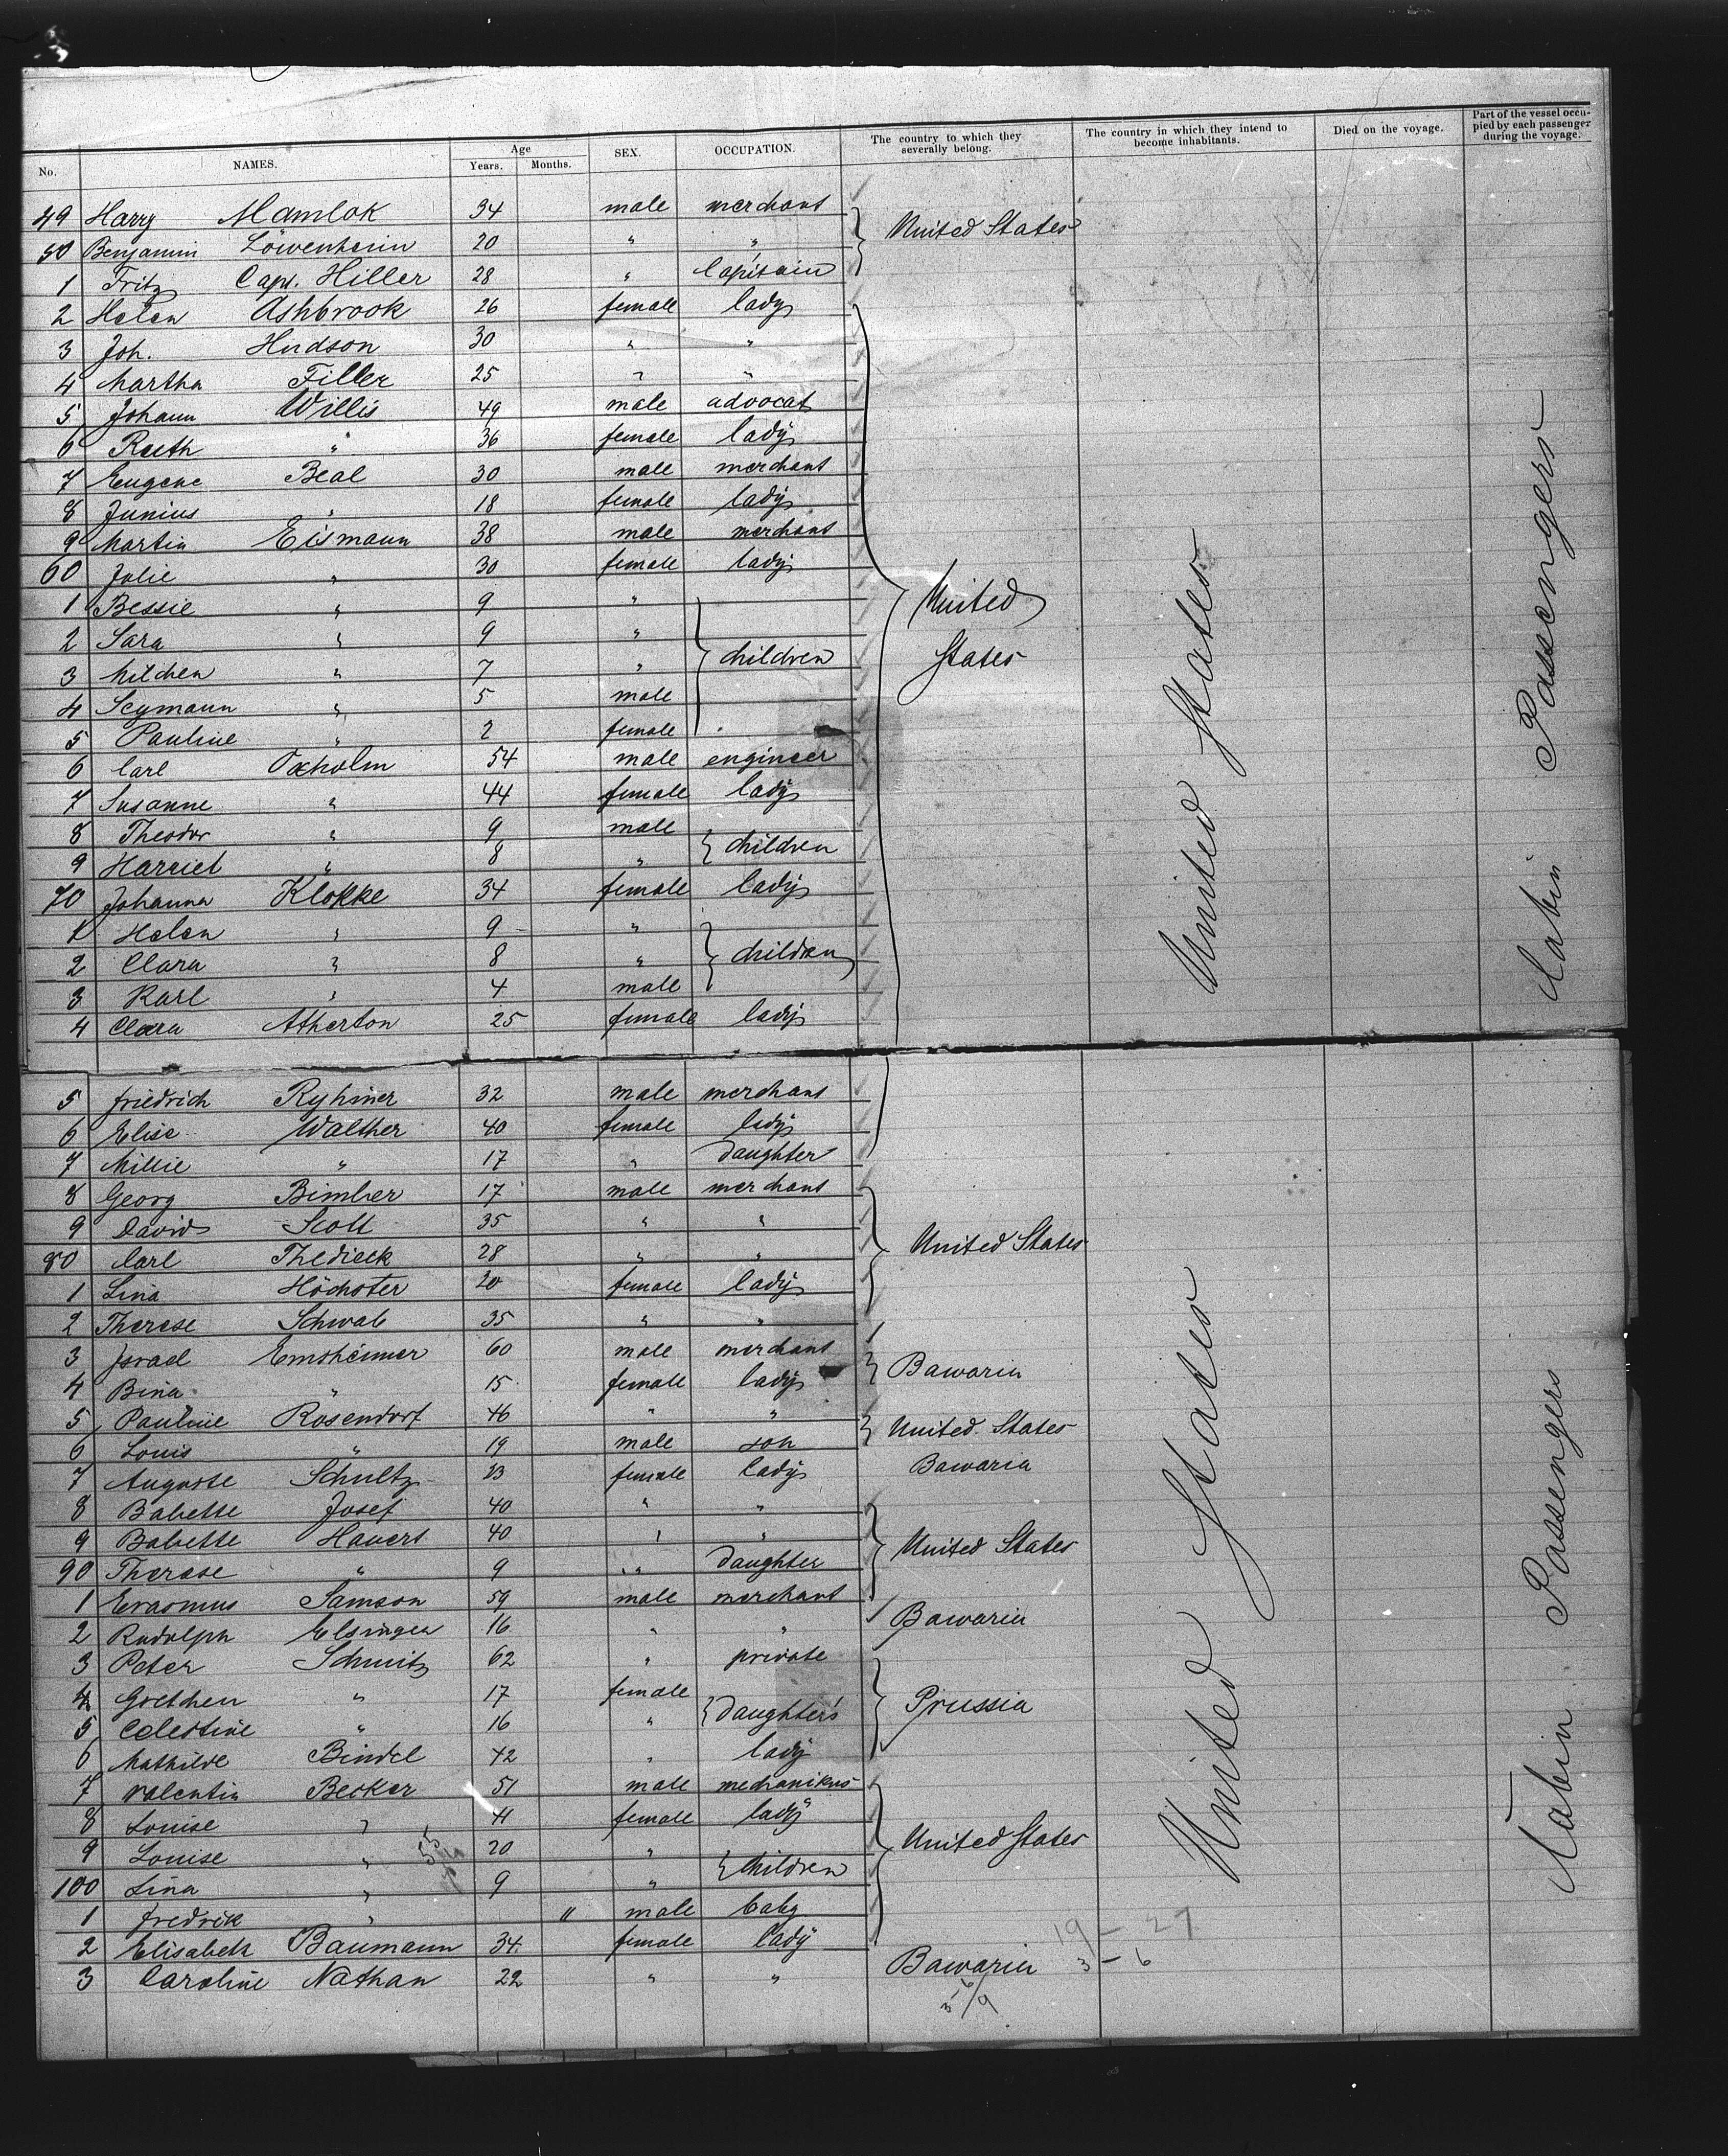 No. NAMES. Age Years. Months. SEX. OCCUPATION. The country to which they severally belong. The country in which they intend to become inhabitants. Died on the voyage. Part of the vessel occupied by each passenger during the voyage.
49 Harry Mamlok 34 male merchant
United States
50 Benjamin Löwenheim 20 " "
1 Fritz Capt. Hiller 28 " Capitain
2 Helen Ashbrook 26 female lady
3 Joh. Hudson 30 " "
4 Martha Filler 25 " "
5 Johann Willis 49 male advocat
6 Ruth " 36 female lady
7 Eugene Beal 30 male merchant
8 Junius " 18 female lady
9 Martin Eismann 38 male merchant
60 Julie " 30 female lady
1 Bessie " 9 "
United States
2 Sara " 9 "
3 Milchen " 7 " children
4 Seymann " 5 male
5 Pauline " 2 female
6 Carl Oxholm 54 male engineer
7 Susanne " 44 female lady
8 Theodor " 9 male
9 Harriet " 8 " children
70 Johanna Klokke 34 female lady
1 Helen " 9 "
2 Clara " 8 " children
3 Karl " 4 male
4 Clara Atherton 25 female lady
United States
Cabin Passengers
5 Friedrich Ryhiner 32 male merchant
6 Elise Walther 40 female lady
7 Millie " 17 " daughter
8 Georg Bimber 17 male merchant
9 David Scott 35 " "
United States
80 Carl Thedieck 28 " "
1 Lina Höchster 20 female lady
2 Therese Schwab 35 " "
3 Israel Emsheimer 60 male merchant
Bawaria
4 Bina " 15 female lady
5 Pauline Rosendorf 46 " "
United States
6 Louis " 19 male son
7 Auguste Schultz 23 female lady Bawaria
8 Babette Josef 40 " "
9 Babette Havert 40 " "
United States
90 Therese " 9 " daughter
1 Erasmus Samson 59 male merchant
Bawaria
2 Rudolph Elsinger 16 " "
3 Peter Schmitz 62 " private
4 Gretchen " 17 female
Prussia
5 Celestine " 16 " daughters
6 Mathilde Bindel 42 " lady
7 Valentin Becker 51 male mechanikus
8 Louise " 41 female lady
United States
9 Louise " 20 "
100 Lina " 9 " children
1 Fredrik " " male baby
2 Elisabeth Baumann 34 female lady
3 Caroline Nathan 22 " "
Bawaria
19 - 27
3 - 6
United States
Cabin Passengers